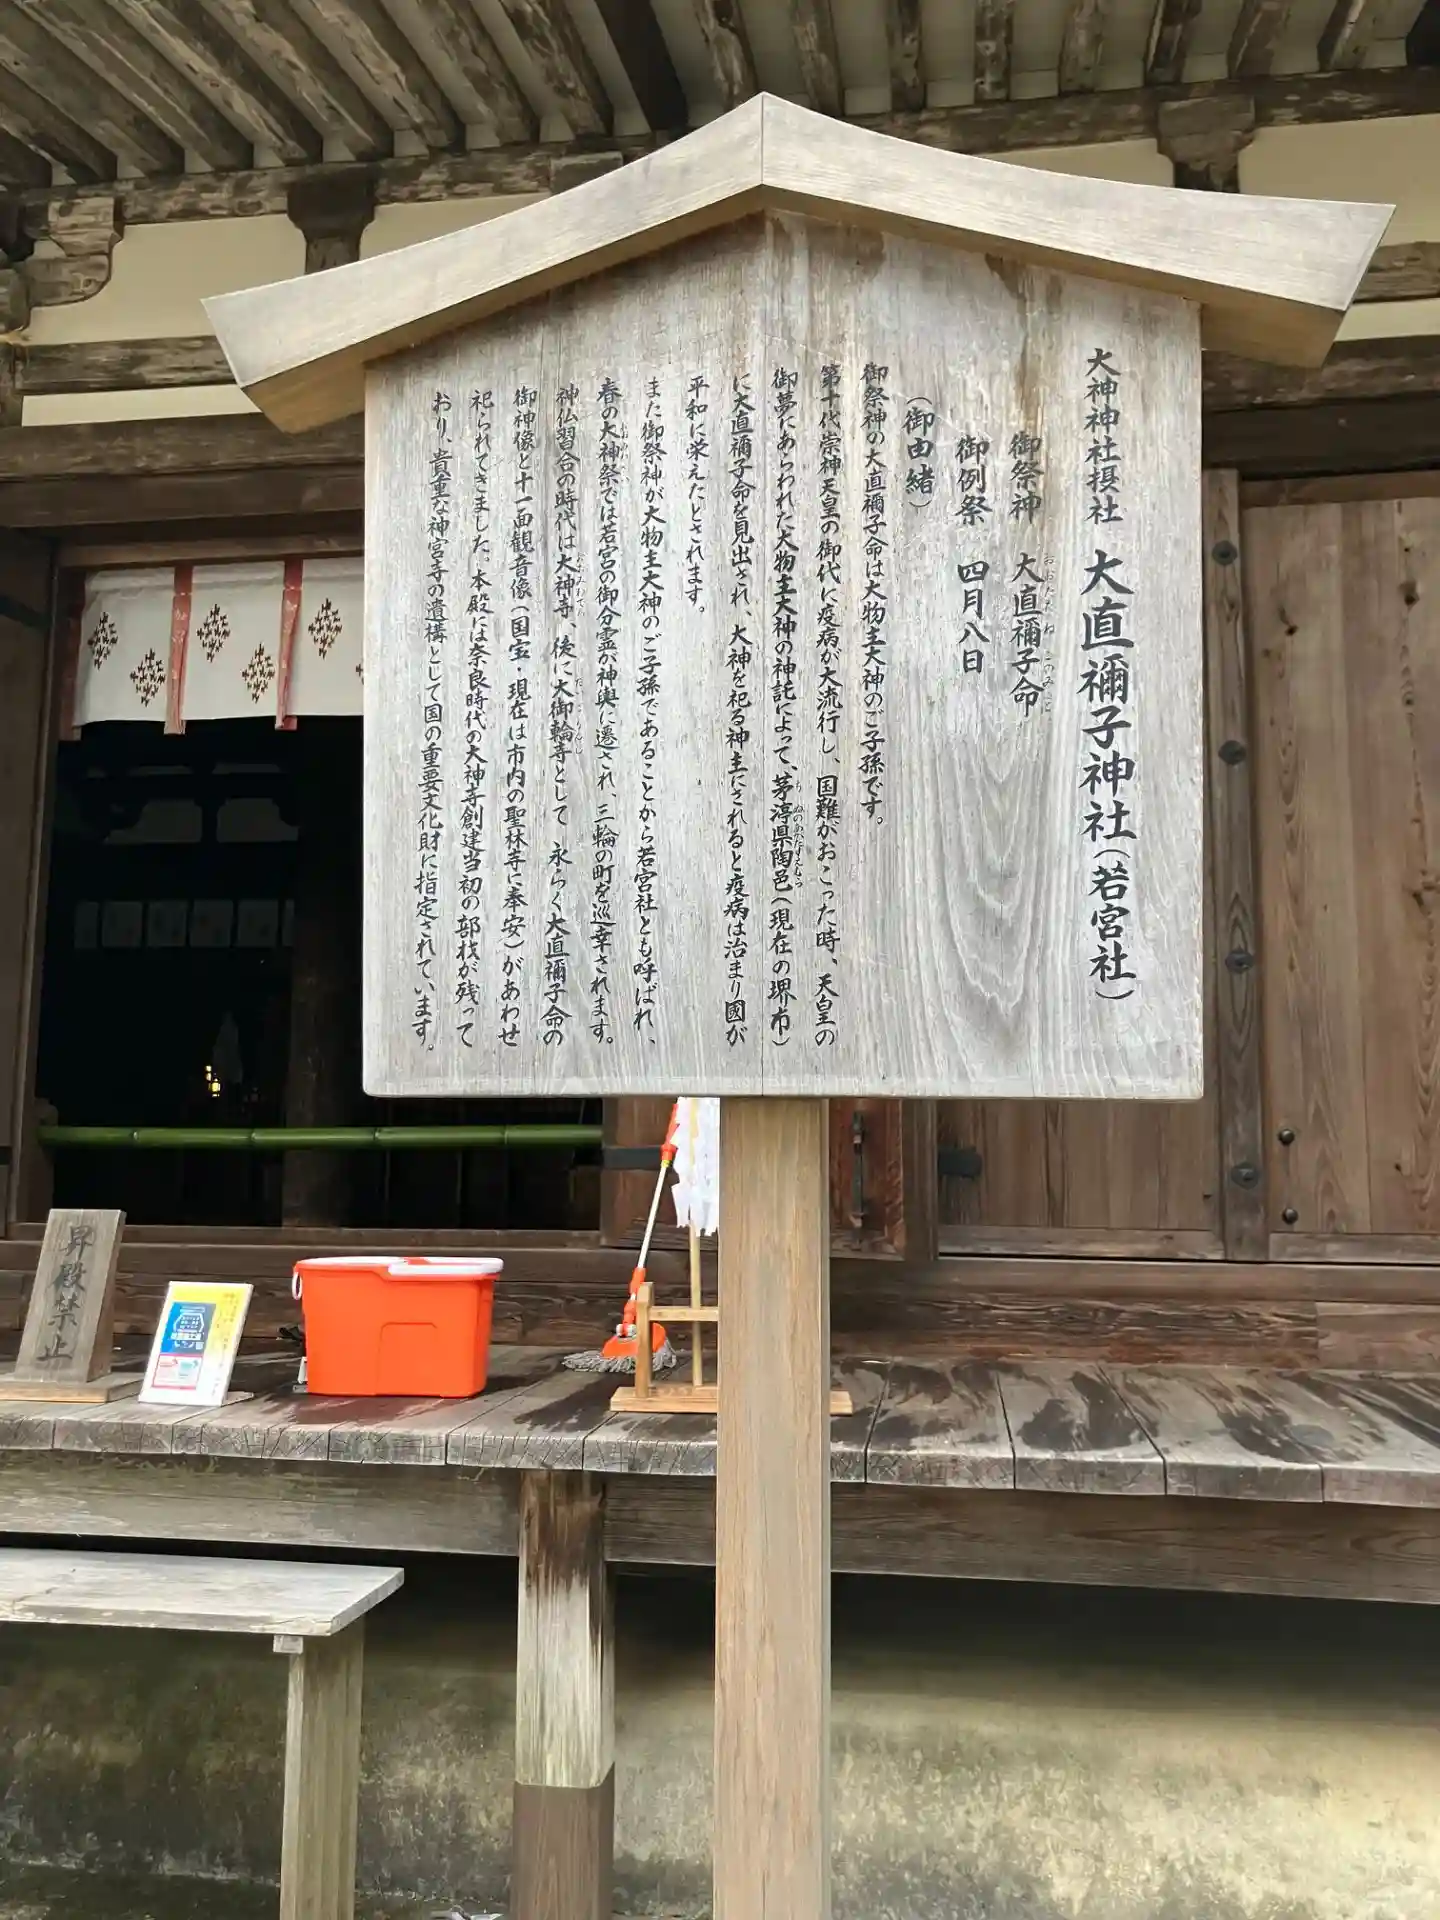 大神神社摂社 大直禰子神社(若宮社)
御祭神 大直禰子命
御例祭 四月八日
(御由緒)
御祭神の大直禰子命は大物主大神のご子孫です。
第十代崇神天皇の御代に疫病が大流行し、国難がおこった時、天皇の
御夢にあらわれた大物主大神の神託によって、茅渟県陶邑(現在の堺市)
に大直禰子命を見出され、大神を祀る神主にされると疫病は治まり國が
平和に栄えたとされます。
また御祭神が大物主大神のご子孫であることから若宮社とも呼ばれ、
春の大神祭では若宮の御分霊が神輿に遷され、三輪の町を巡幸されます。
神仏習合の時代は大神寺、後に大御輪寺として 永らく大直禰子命の
御神像と十一面観音像(国宝・現在は市内の聖林寺に奉安)があわせ
祀られてきました。本殿には奈良時代の大神寺創建当初の部材が残って
おり、貴重な神宮寺の遺構として国の重要文化財に指定されています。
昇殿禁止